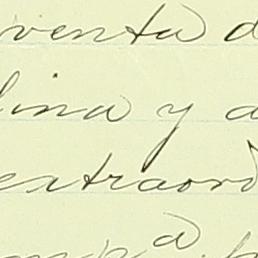 venta d
lina y a
extraord